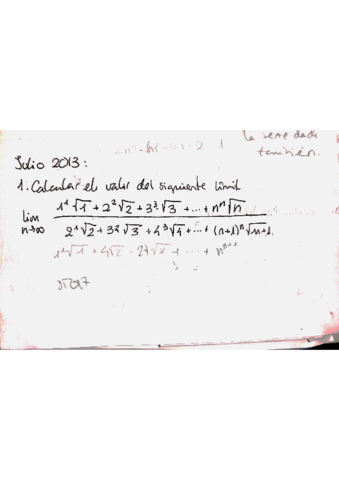 la serie dada
también.
Julio 2013:
1. Calcular el valor del siguiente límit
lim n→∞ (1¹√1 + 2²√2 + 3³√3 + ... + nⁿ√n) / (2¹√2 + 3²√3 + 4³√4 + ... + (n+1)ⁿ√n+1)
1¹√1 + 4√2 + 27√3 + ... + nⁿ⁺¹